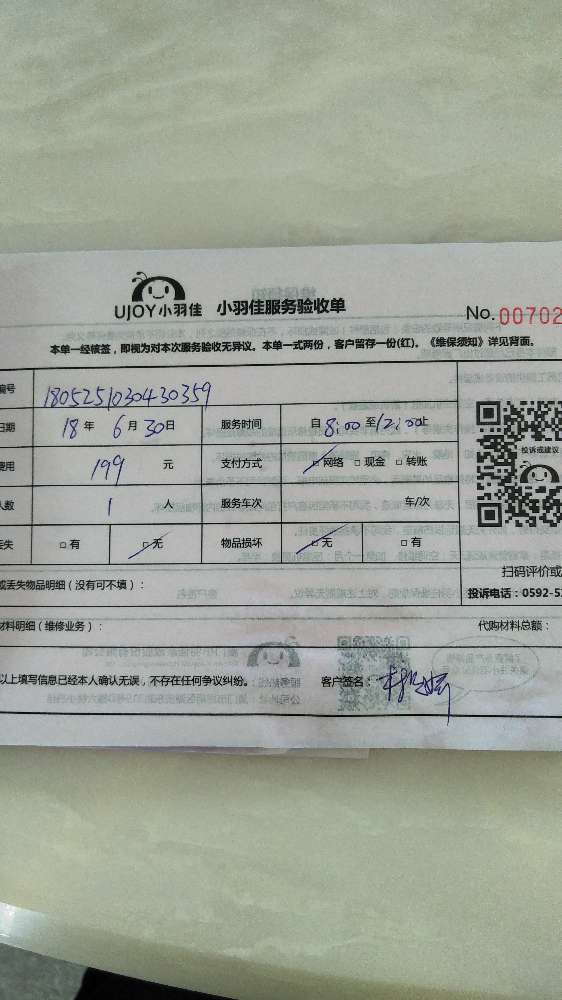 UJOY小羽佳 小羽佳服务验收单
No. 00702
本单一经核签，即视为对本次服务验收无异议。本单一式两份，客户留存一份(红)。《维保须知》详见背面。
编号 1805251030430359
日期 18 年 6 月 30 日 服务时间 自 8:00 至 12:00 止
费用 199 元 支付方式 网络 现金 转账
人数 1 人 服务车次 车/次
丢失 有 无 物品损坏 无 有
投诉或建议
扫码评价或
或丢失物品明细（没有可不填）：
投诉电话：0592-5
材料明细（维修业务）： 代购材料总额：
以上填写信息已经本人确认无误，不存在任何争议纠纷。 客户签名：